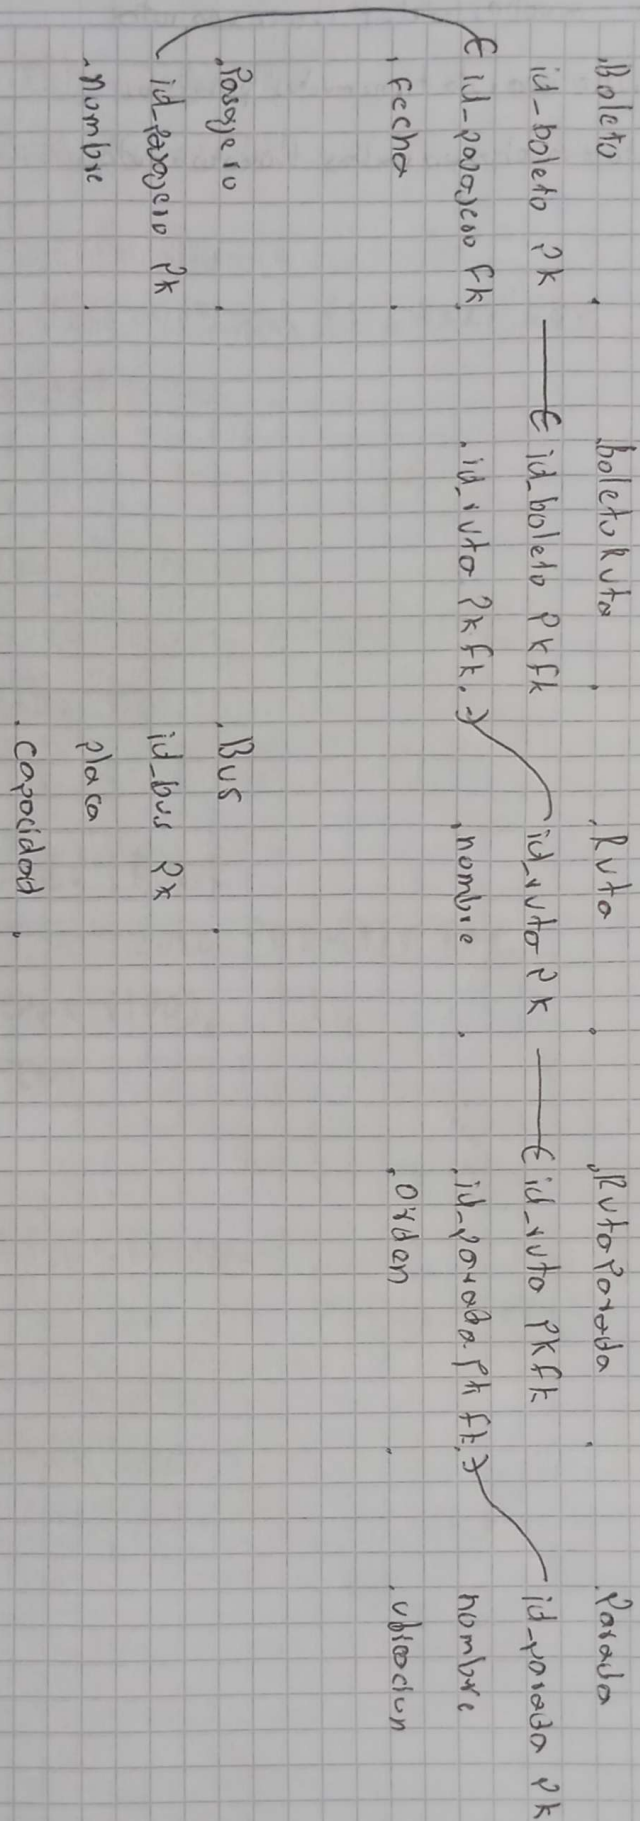 Boleto
id_boleto Pk
id_pasajero fk
fecha
boletoRuta
id_boleto Pkfk
id_ruta Pkfk
Ruta
id_ruta Pk
nombre
RutaParada
id_ruta Pkfk
id_parada Pk fk
orden
Parada
id_parada Pk
nombre
ubicacion
Pasajero
id_pasajero Pk
nombre
Bus
id_bus Pk
placa
capacidad